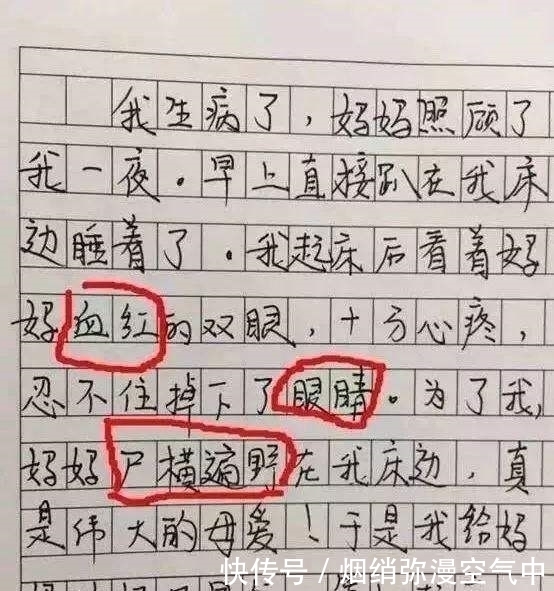 我生病了，妈妈照顾了
我一夜。早上直接趴在我床
边睡着了。我起床后看着妈
妈血红的双眼，十分心疼，
忍不住掉下了眼睛。为了我，
妈妈尸横遍野在我床边，真
是伟大的母爱！于是我给妈
快传号/烟绡弥漫空气中